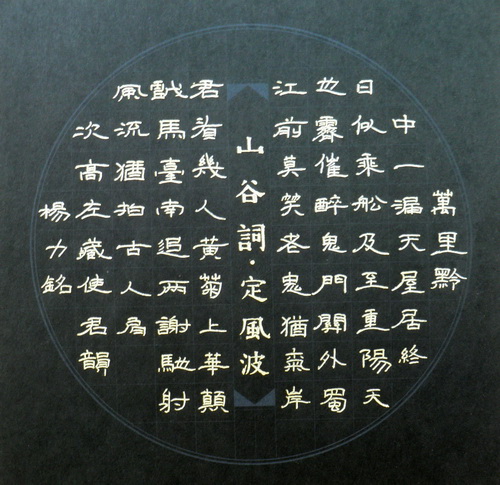 萬里黔
中一漏天屋居終
日似乘舩及至重陽天
也霽催醉鬼門關外蜀
江前莫笑老鬼猶氣岸
山谷詞·定風波
君看幾人黃菊上華顛
戲馬臺南追兩謝馳射
風流猶拍古人肩
次高左藏使君韻
楊力銘